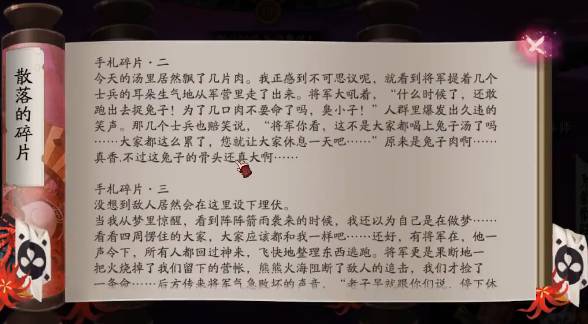 散落的碎片
手札碎片·二
今天的汤里居然飘了几片肉。我正感到不可思议呢，就看到将军提着几个
士兵的耳朵生气地从军营里走了出来。将军大吼着，“什么时候了，还敢
跑出去捉兔子！为了几口肉不要命了吗，臭小子！”人群里爆发出久违的
笑声。那几个士兵也赔笑说，“将军你看，这不是大家都喝上兔子汤了吗
……大家都这么累了，您就让大家休息一天吧……”原来是兔子肉啊……
真香.不过这兔子的骨头还真大啊……
手札碎片·三
没想到敌人居然会在这里设下埋伏。
当我从梦里惊醒，看到阵阵箭雨袭来的时候，我还以为自己是在做梦……
看看四周愣住的大家，大家应该都和我一样吧……还好，有将军在，他一
声令下，所有人都回过神来，飞快地整理东西逃跑。将军更是果断地一
把火烧掉了我们留下的营帐，熊熊火海阻断了敌人的追击，我们才捡了
一条命……后方传来将军气急败坏的声音，“老子早就跟你们说，停下休